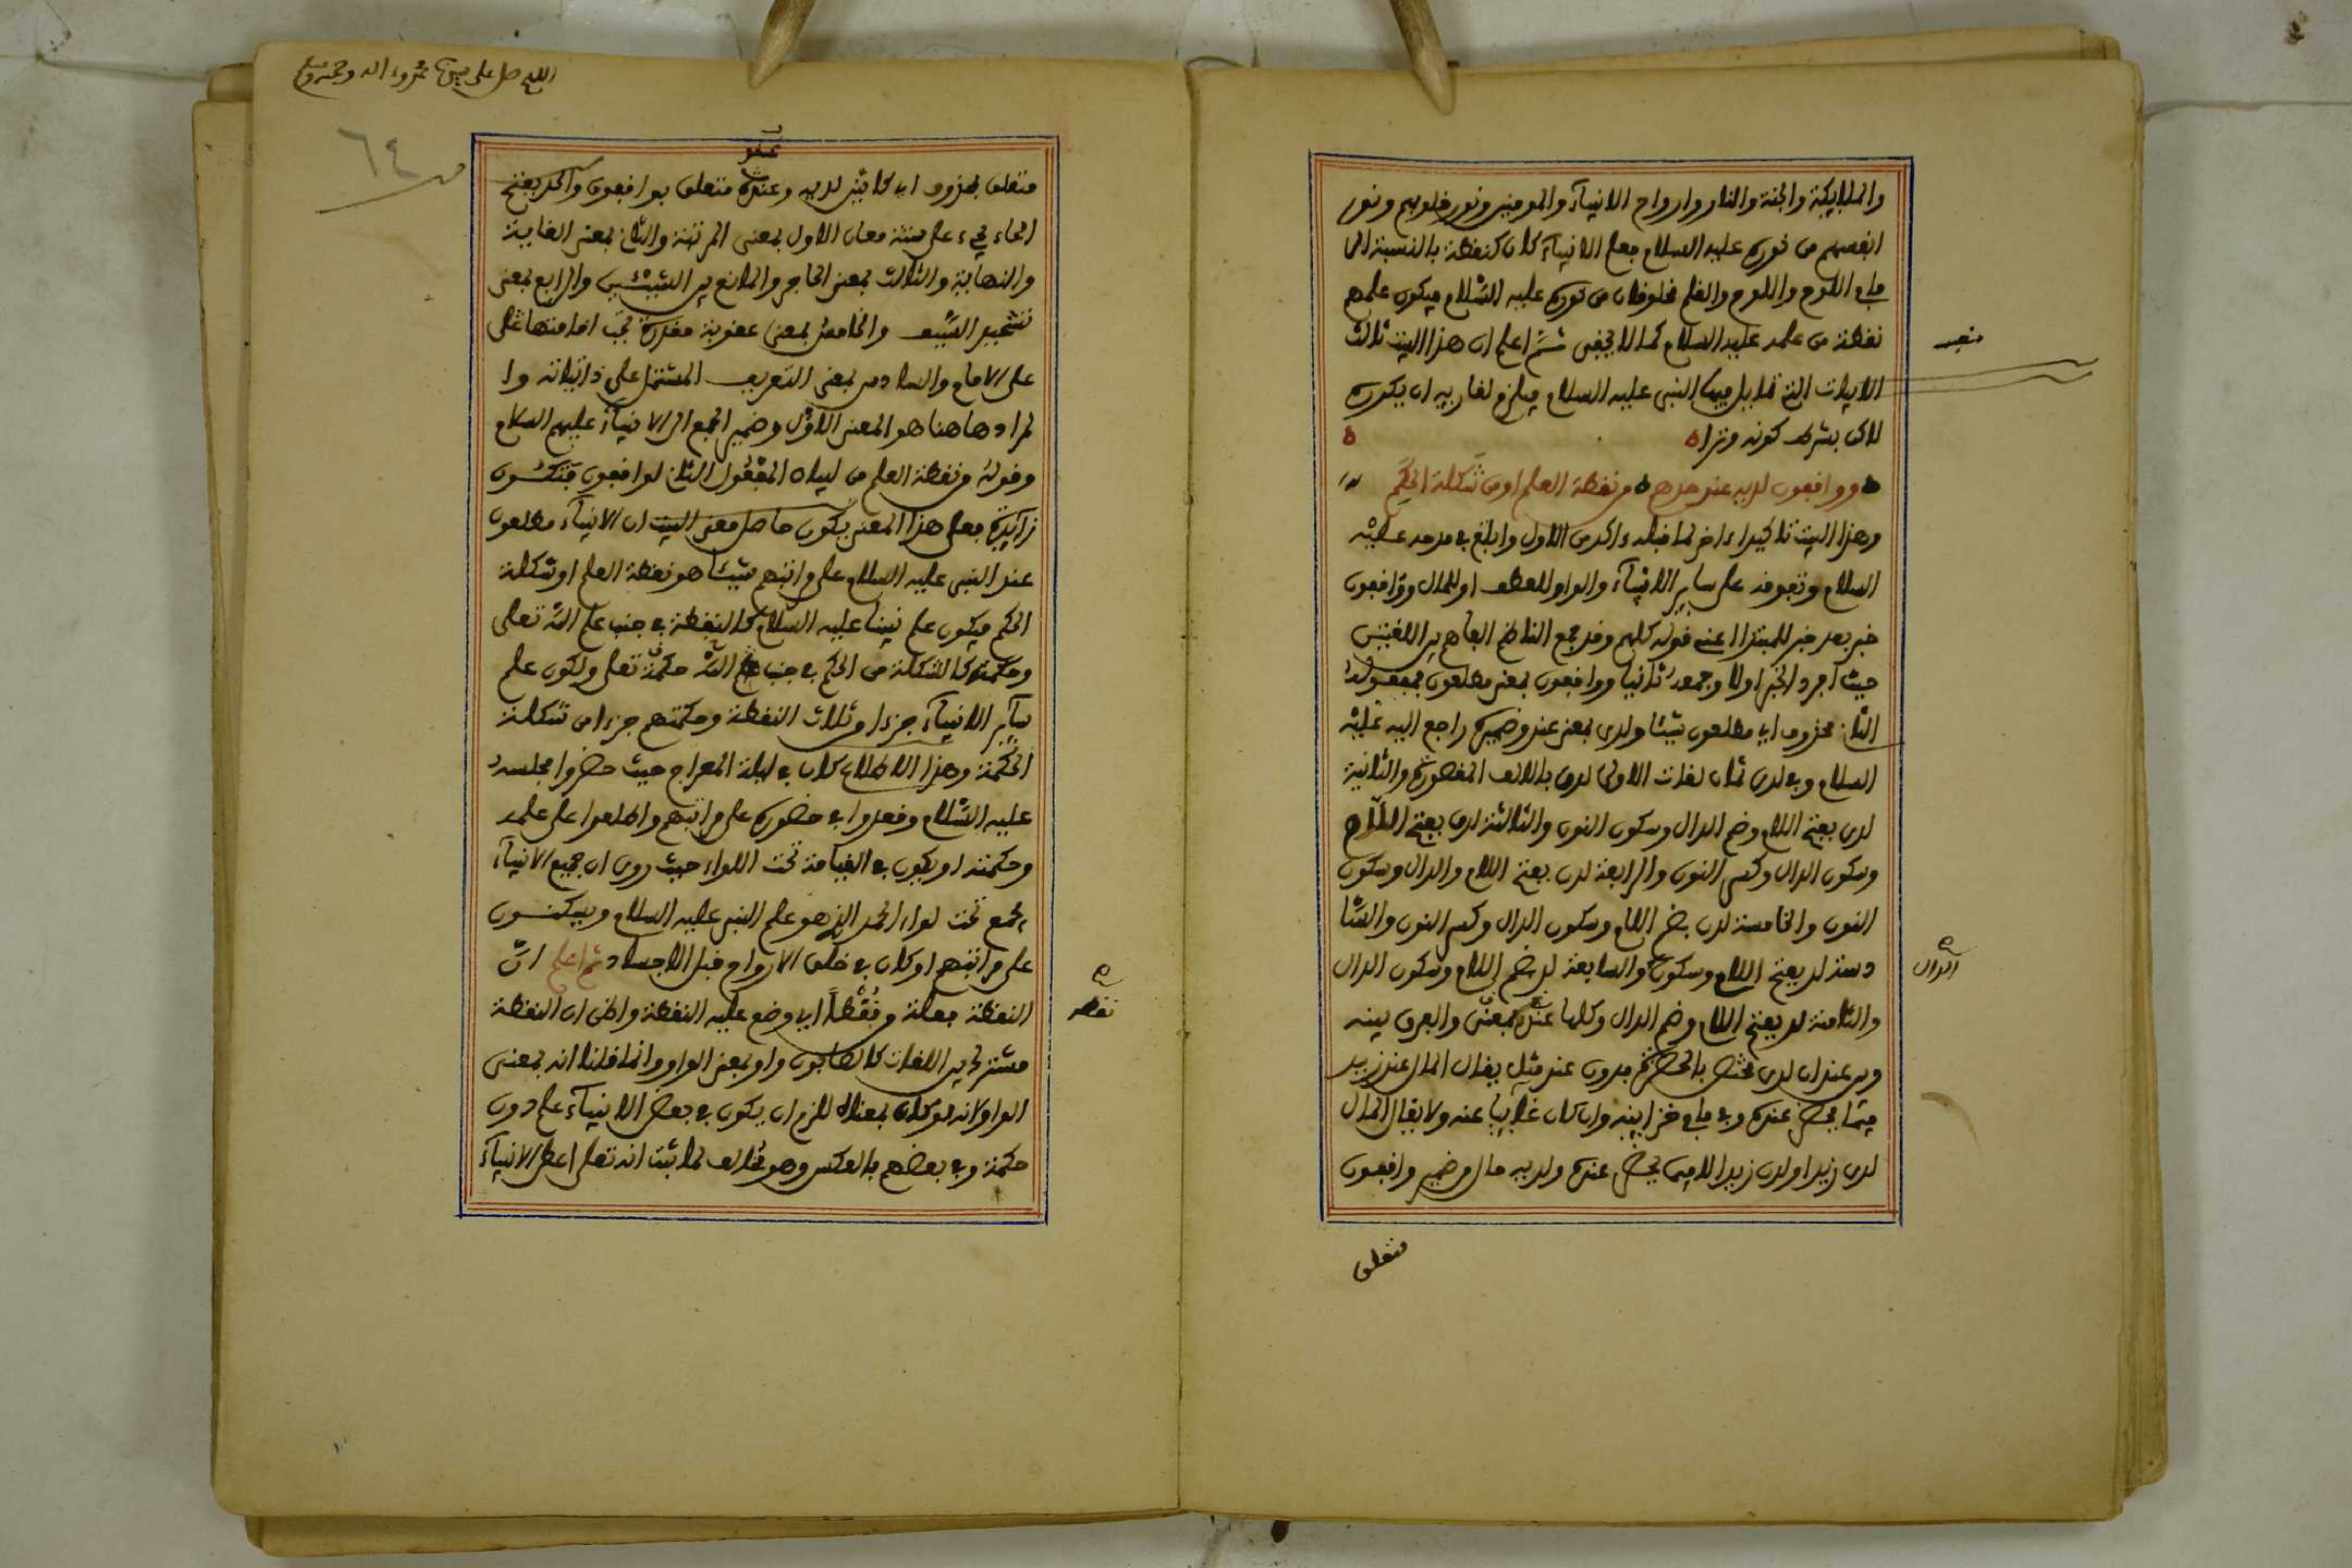 والملايكة والجنة والنار وارواح الانبيآء والمومنين ونور قلوبهم ونور
انفسهم من نوره عليه السلام فعلم الانبيآء كان كنقطة بالنسبة الى
ما في اللوح واللوح والقلم مخلوقان من نوره عليه السّلام فيكون علمهم
نقطة من علمه عليه السلام كما لا يخفى ثمّ اعلم ان هذا البيت ثالث
الابيات التي تمايل فيها النبي عليه السلام فيلزم لقاريه ان يكرره
لاكن بشرط كونه وترا
وواقفون لديه عند حدهم من نقطة العلم او من شكلة الحكم
وهذا البيت تاكيد اخر لما قبله واكد من الاول وابلغ في مدحه عليه
السلام وتفوقه على ساير الانبيآء والواو للعطف او للحال وواقفون
خبر بعد خبر للمبتدا اعني قوله كلهم وقد جمع الناظم الفاهم بين اللغتين
حيث افرد الخبر اولا وجمعه ثانيا وواقفون بمعنى مطلعون فمفعوله
الثان محذوف اي مطلعون شيئا ولدى بمعنى عند وضميره راجع اليه عليه
السلام وفي لدى ثمان لغات الاولى لدى بالالف المقصورة والثانية
لدن بفتح اللام وضم الدال وسكون النون والثالثة لدن بفتح اللام
وسكون الدال وكسر النون والرابعة لدن بفتح اللام والدال وسكون
النون والخامسة لدن بضم اللام وسكون الدال وكسر النون والسّا
دسة لد بفتح اللام وسكون والسابعة لد بضم اللام وسكون الدال
والثامنة لد بفتح اللام وضم الدال وكلها بمعنى والفرق بينه
وبين عند ان لدى مختص بالحضرة بدون عند مثل يقال المال عند زيد
فيما يحضر عنده وفي ما في خزاينه وان كان غايبا عنه ولا يقال المال
لدى زيد او لدن زيد الا فيما يحضر عنده ولديه حال من ضمير واقفون
متعلق
الدال
اللهم صل على
٦٤
متعلق بمحذوف اي كائنين لديه وعند متعلق بواقفون والحد بفتح
الحاء يجيء على ستة معان الاول بمعنى المرتبة والثان بمعنى الغاية
والنهاية والثالث بمعنى الحاجز والمانع بين الشيئين والرابع بمعنى
تشحيد السّيف والخامس بمعنى عقوبة مقدرة يجب اقامتها على
على الامام والسادس بمعنى التعريف المشتمل على ذاتياته وا
لمراد هاهنا هو المعنى الاوّل وضمير الجمع الى الانبيآء عليهم السلام
وقوله من نقطة العلم من لبيان المفعول الثان لواقفون فتكون
زايدة فعلى هذا المعنى يكون حاصل معنى البيت ان الانبيآء مطلعون
عند النبي عليه السلام على مراتبهم شيئا هو نقطة العلم او شكلة
الحكم فيكون علم نبينا عليه السّلام كالنقطة في جنب علم اللّه تعالى
وحكمته كالشكلة من الحكم في جنب اللّه حكمة تعالى ولكون علم
ساير الانبيآء جزءا من ثلاث النقطة وحكمتهم جزءا من شكلة
الحكمة وهذا الاطلاع كان في ليلة المعراج حيث حضروا مجلسه
عليه السّلام وقعدوا في حضوره على مراتبهم واطلعوا على علمه
وحكمته او يكون في القيامة تحت اللواء حيث روى ان جميع الانبيآء
يجمع تحت لواء الحمد الذي هو علم النبي عليه السلام ويسكنون
على مراتبهم او كان في خلق الارواح قبل الاجساد ثم اعلم انّ
النقطة فعلة من نقط اي وضع عليه النقطة واظن ان النقطة
مشترك بين اللغات كالصابون واو بمعنى الواو وانما قلنا انه بمعنى
الواو لانه لو كان بمعناه للزم ان يكون في بعض الانبيآء علم دون
حكمة وفي بعضهم بالعكس وهو مخالف لما ثبت انه تعالى اعطى الانبيآء
نقطه